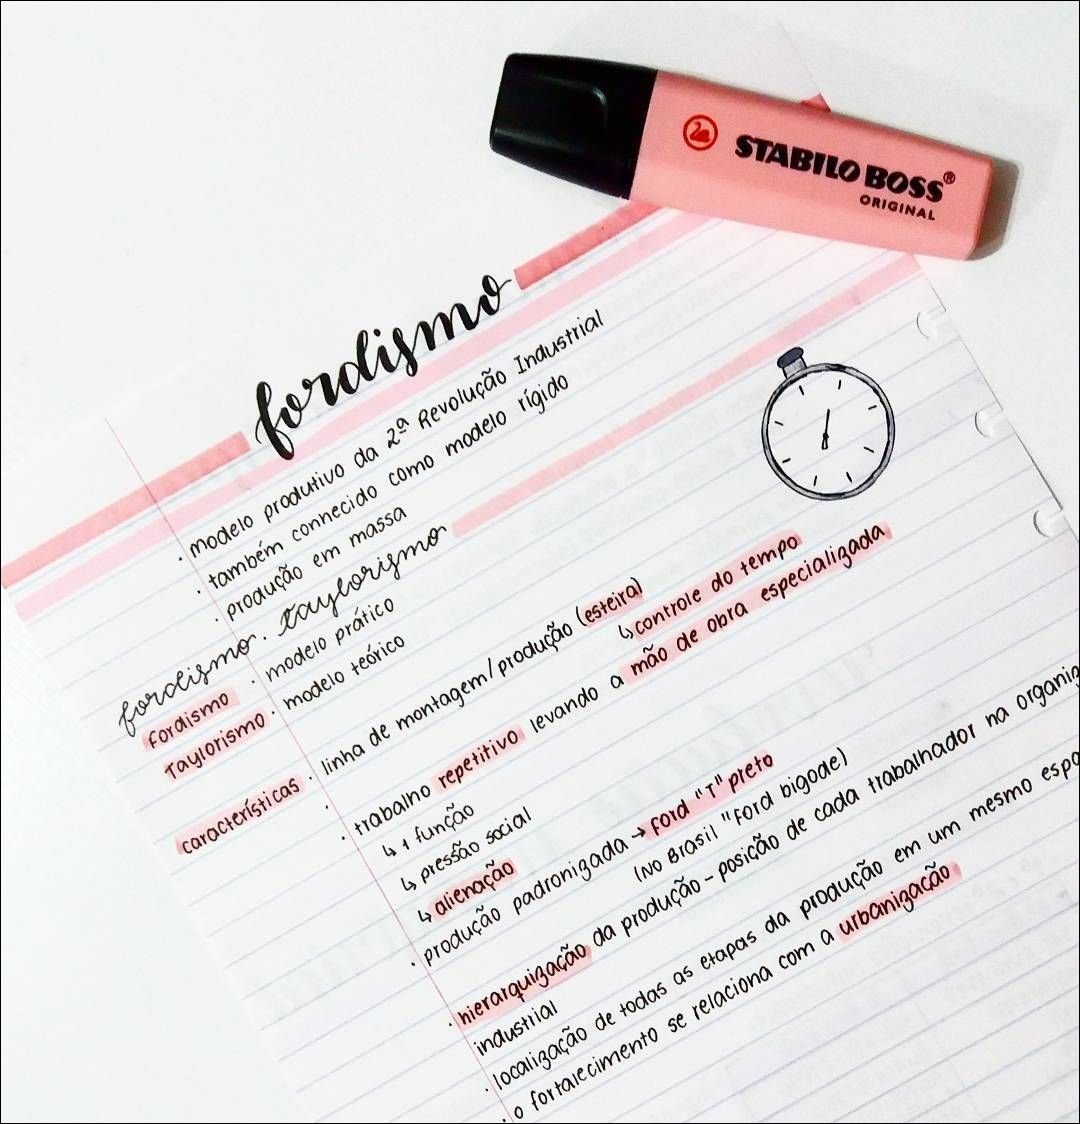 STABILO BOSS®
ORIGINAL
fordismo
· modelo produtivo da 2ª Revolução Industrial
· também conhecido como modelo rígido
· produção em massa
fordismo. taylorismo
Fordismo · modelo prático
Taylorismo · modelo teórico
características · linha de montagem/produção (esteira)
↳ controle do tempo
· trabalho repetitivo levando a mão de obra especializada
↳ 1 função
↳ pressão social
↳ alienação
· produção padronizada → Ford "T" preto
(No Brasil "Ford bigode)
· hierarquização da produção - posição de cada trabalhador na
industrial
· localização de todas as etapas da produção em um mesmo
· o fortalecimento se relaciona com a urbanização